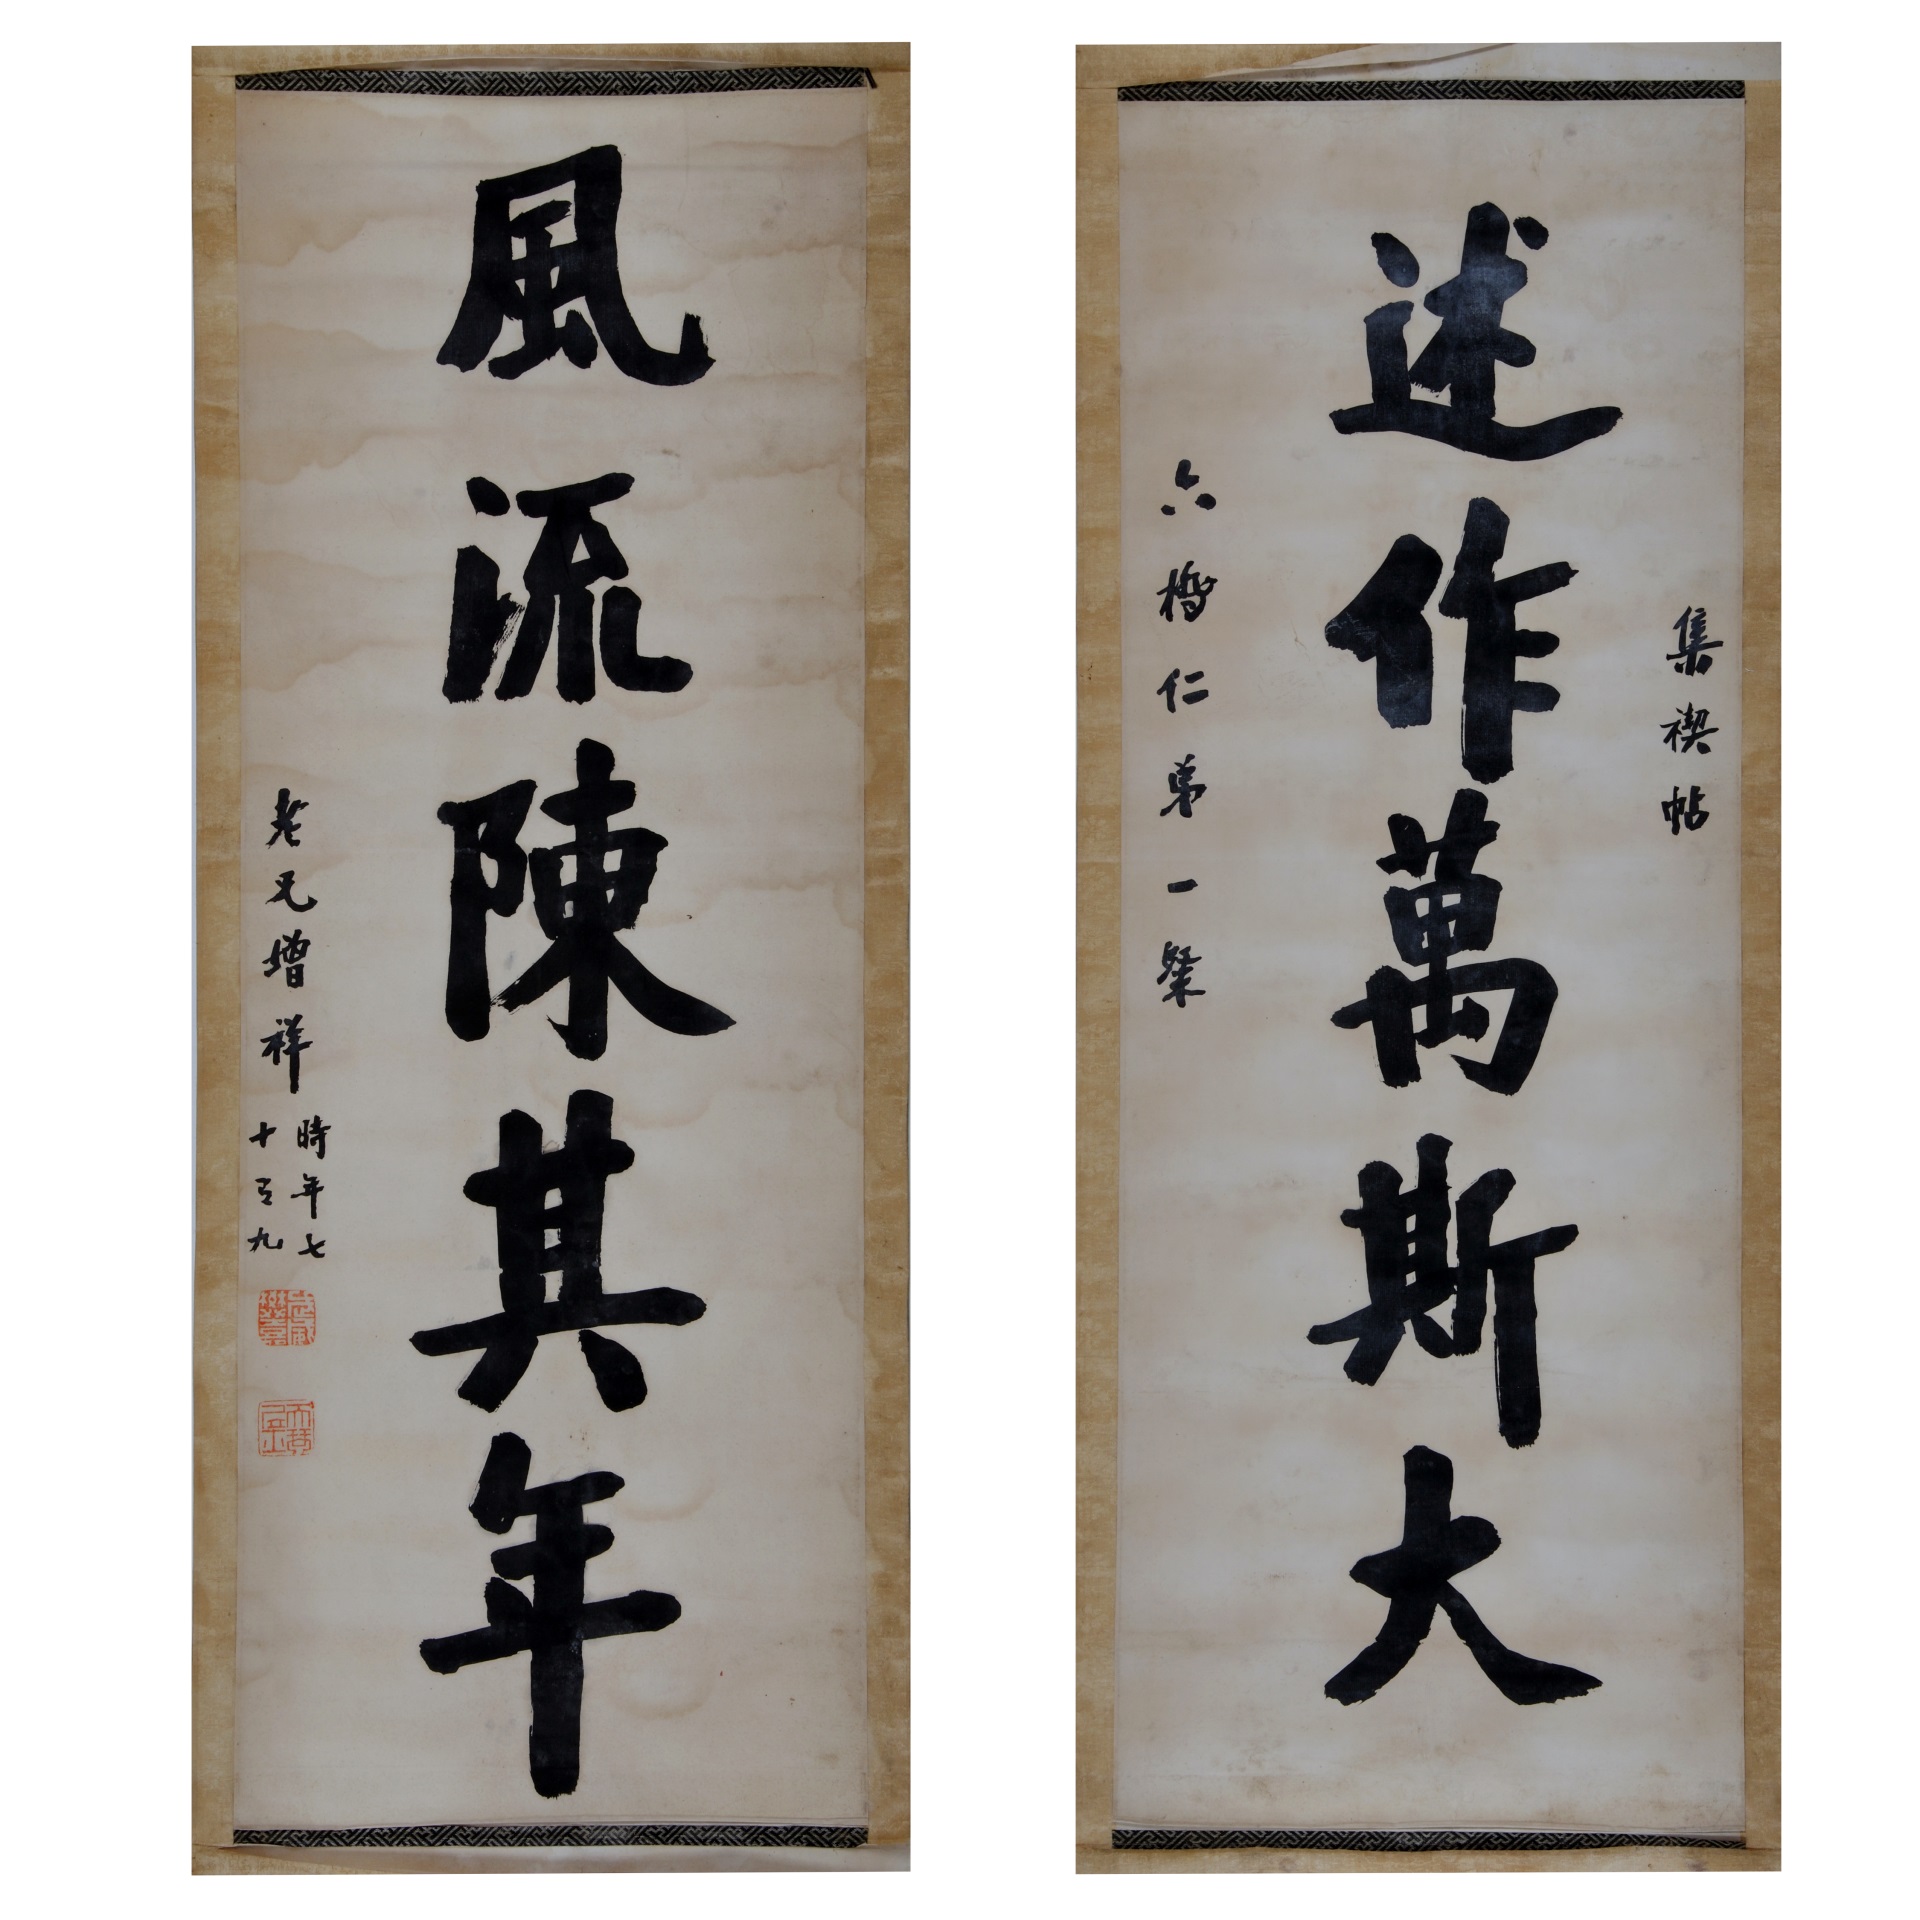 集禊帖
述作萬斯大
六橋仁弟一粲
風流陳其年
老兄增祥
時年七
十有九